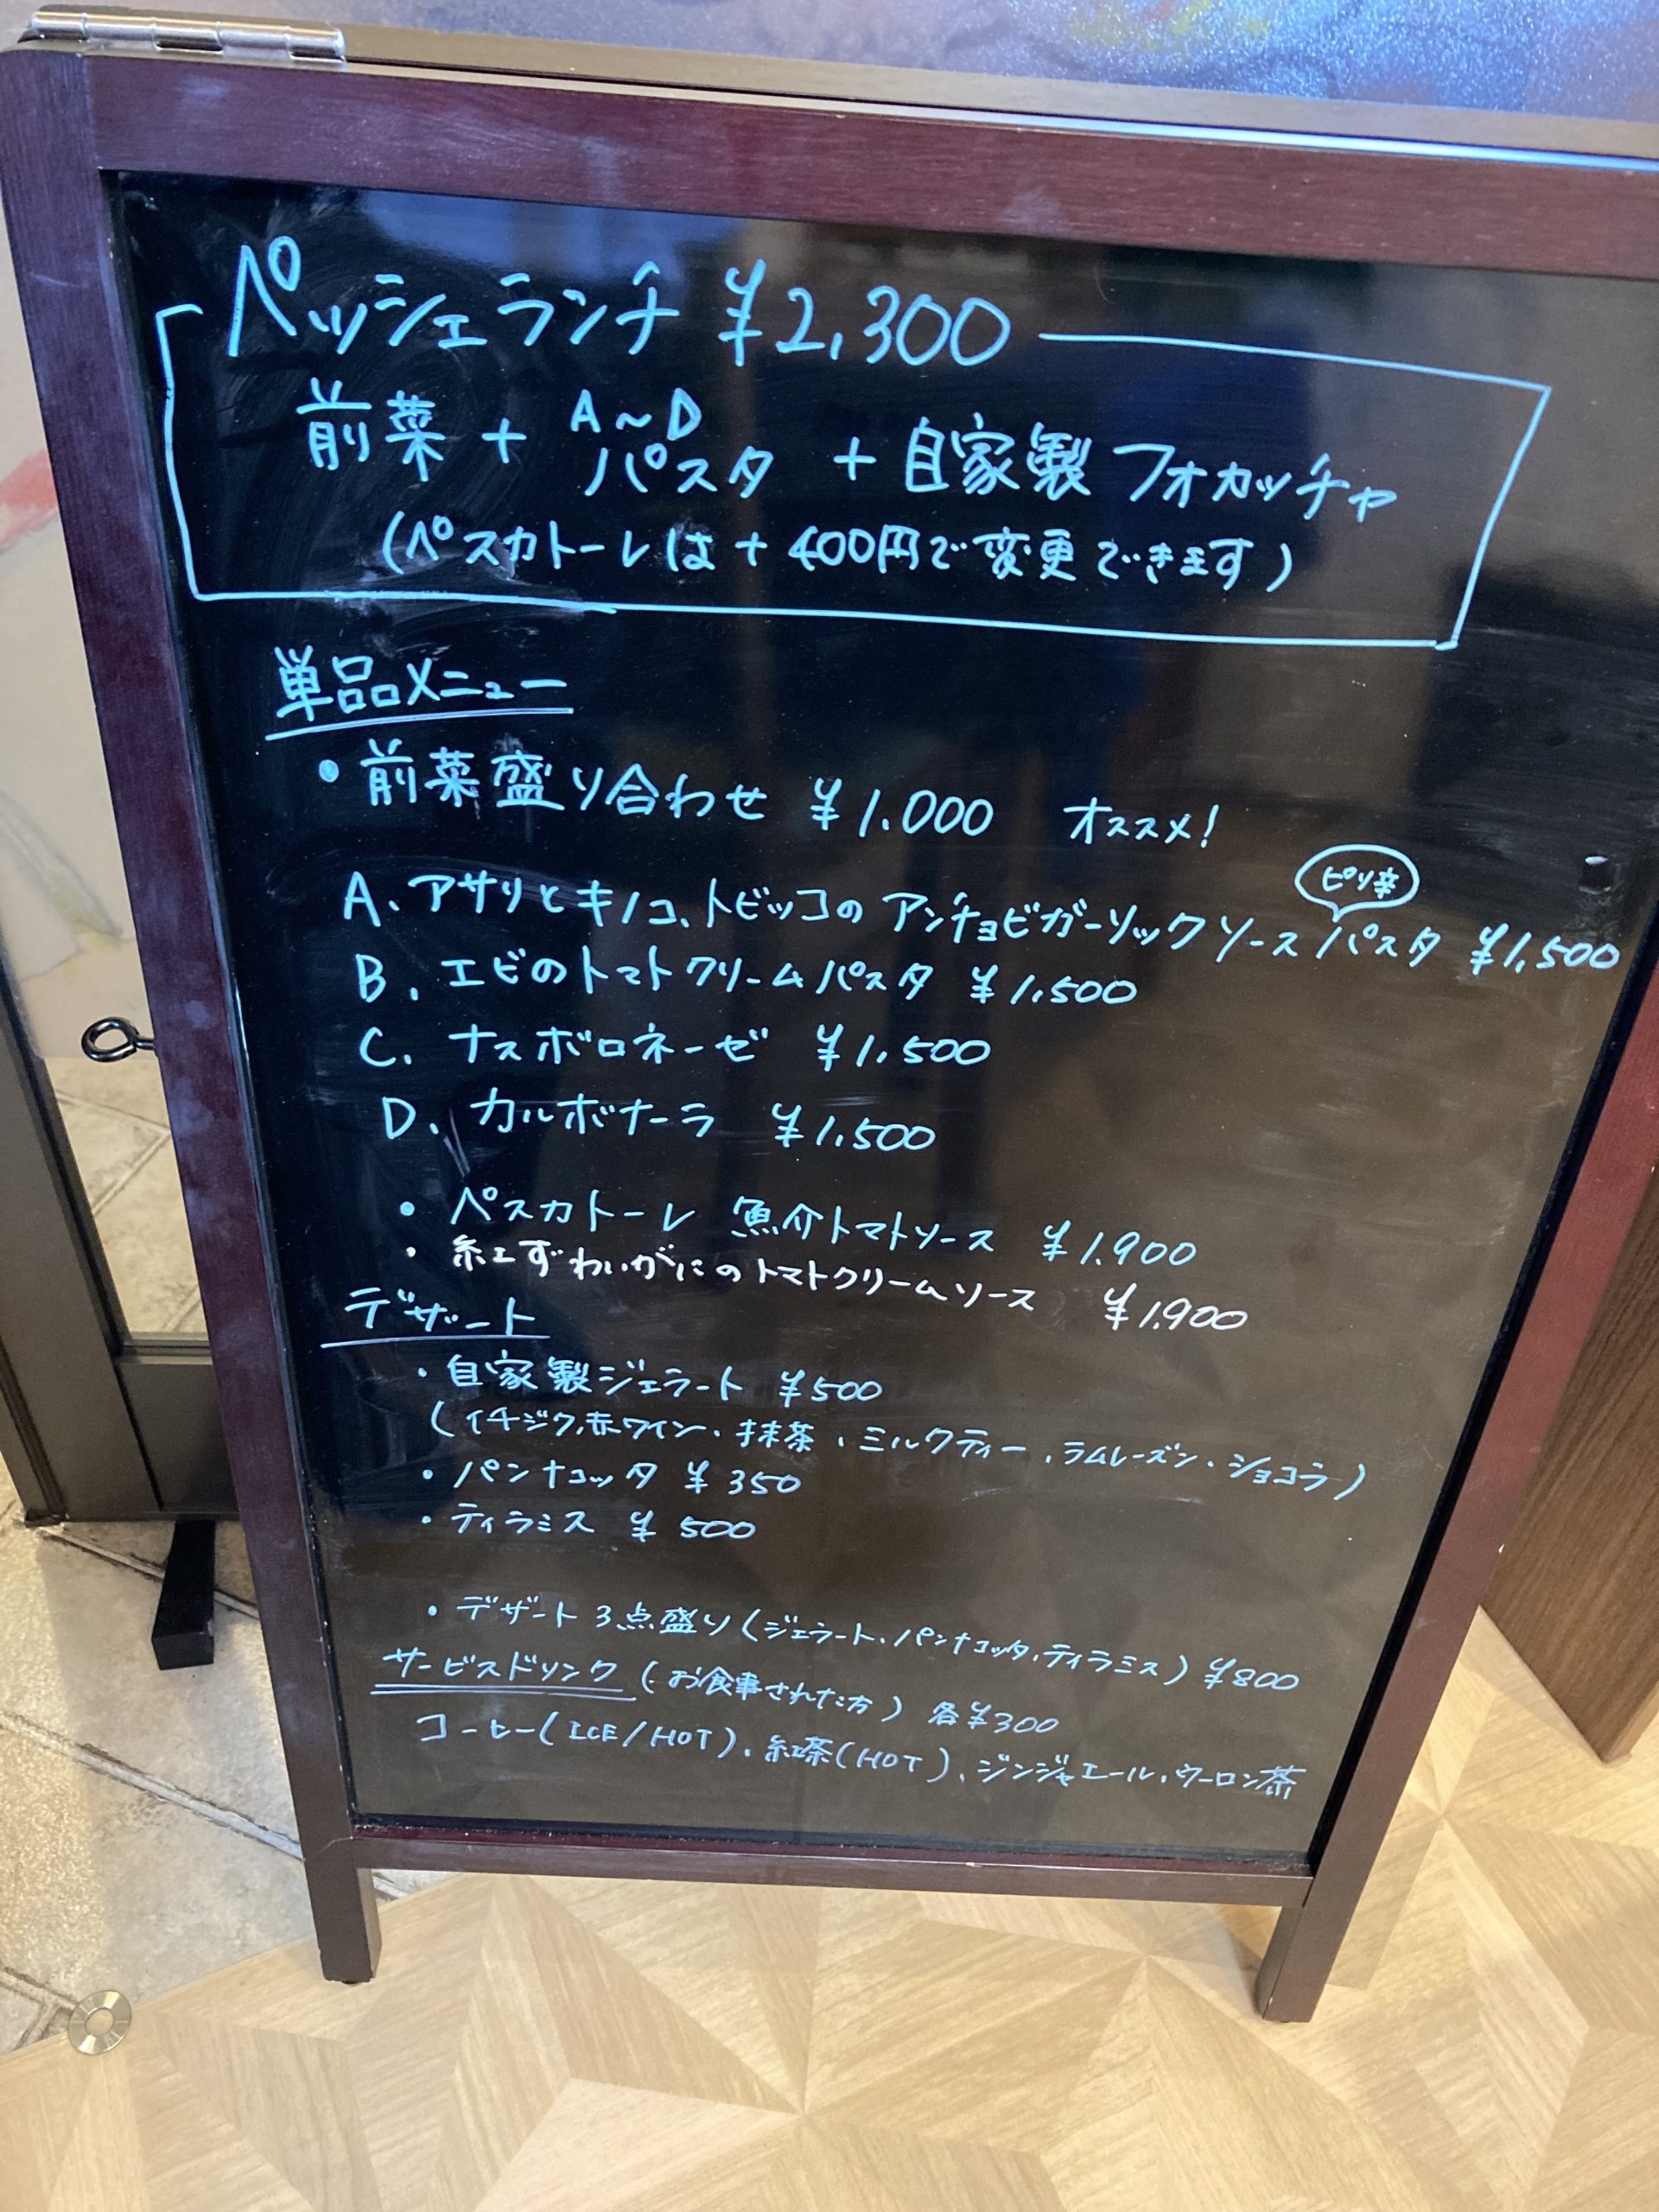 ペッシェランチ ¥2,300
前菜 + A~Dパスタ + 自家製フォカッチャ
(ペスカトーレは+400円で変更できます)
単品メニュー
・前菜盛り合わせ ¥1.000 オススメ!
ピリ辛
A、アサリとキノコ、トビッコのアンチョビガーリックソースパスタ ¥1,500
B、エビのトマトクリームパスタ ¥1,500
C、ナスボロネーゼ ¥1,500
D、カルボナーラ ¥1,500
・ペスカトーレ 魚介トマトソース ¥1,900
・紅ずわいがにのトマトクリームソース ¥1,900
デザート
・自家製ジェラート ¥500
(イチジク,赤ワイン・抹茶、ミルクティー、ラムレーズン・ショコラ)
・パンナコッタ ¥350
・ティラミス ¥500
・デザート3点盛り(ジェラート、パンナコッタ、ティラミス) ¥800
サービスドリンク(お食事された方) 各¥300
コーヒー(ICE/HOT)、紅茶(HOT)、ジンジャエール、ウーロン茶